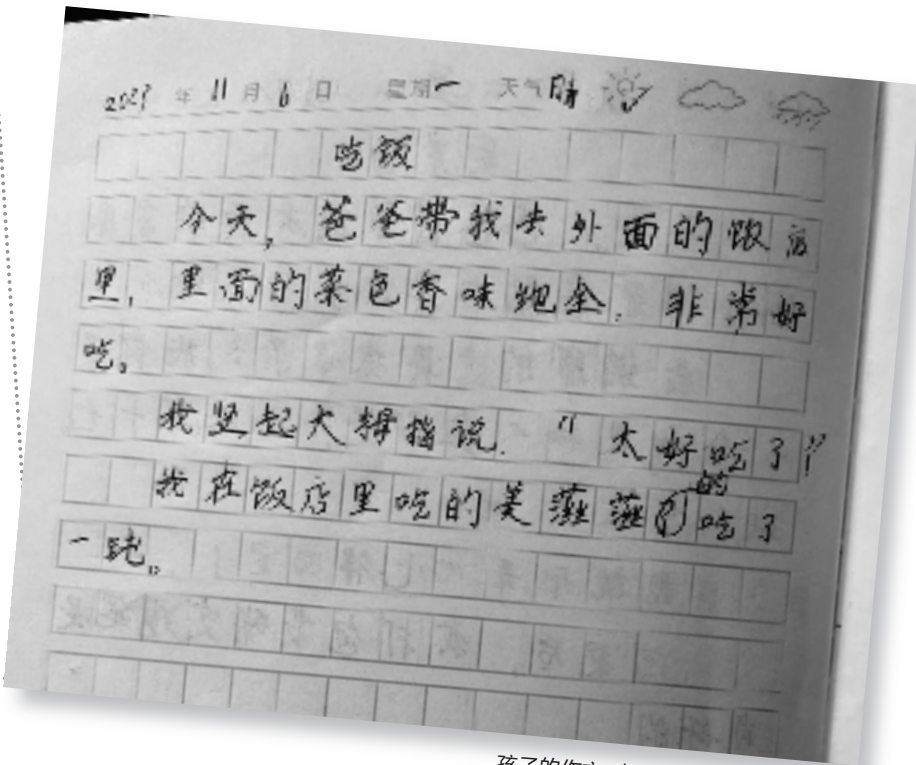 2023年11月6日 星期一 天气晴
吃饭
今天，爸爸带我去外面的饭店
里，里面的菜色香味全．非常好
吃。
我竖起大拇指说．"太好吃了！"
我在饭店里吃的美滋滋的吃了
一顿。
孩子的作文